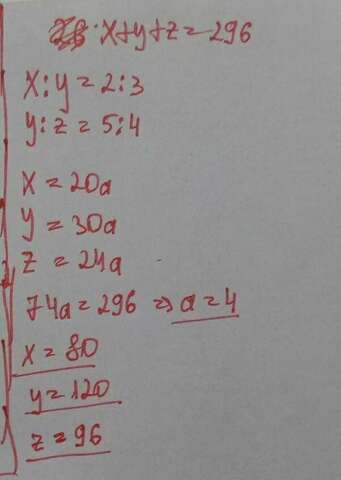 x+y+z=296
x:y=2:3
y:z=5:4
x=20a
y=30a
z=24a
74a=296 => a=4
x=80
y=120
z=96